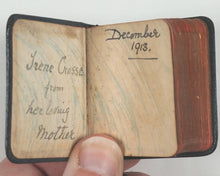 Irene Cross
from
her loving
Mother
December
1913.